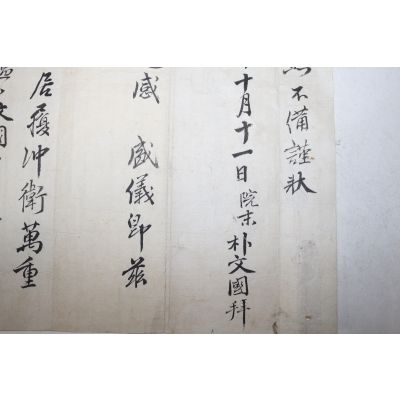 不備謹狀
十月十一日院末朴文國拜
感 盛儀卽茲
居履沖衛萬重